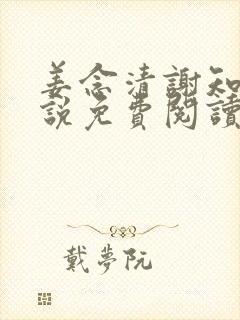 姜念清謝知
說免費閱讀
戴夢阮